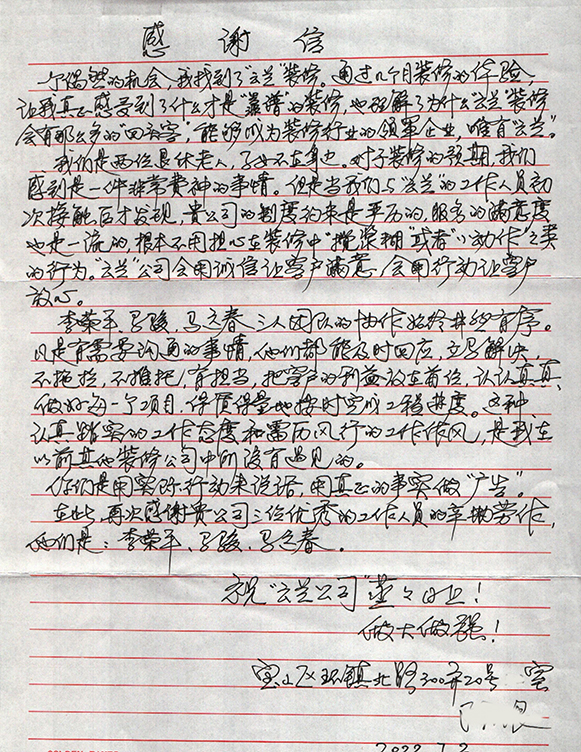 感谢信
一个偶然的机会，我找到了“云兰”装修。通过几个月装修的体验，
让我真正感受到了什么才是“靠谱”的装修，也理解了为什么“云兰”装修
会有那么多的“回头客”；能够成为装修行业的领军企业，唯有“云兰”。
我们是两位退休老人，子女不在身边。对于装修的预期，我们
感到是一件非常费神的事情。但是当我们与“云兰”的工作人员初
次接触后才发现，贵公司的制度约束是严厉的，服务的满意度
也是一流的，根本不用担心在装修中“捣浆糊”或者“小动作”之类
的行为。“云兰”公司会用诚信让客户满意，会用行动让客户
放心。
李荣平、马骏、马立春三人团队的协作始终井然有序。
凡是有需要沟通的事情，他们都能及时回应，立马解决，
不拖拉，不推托，有担当，把客户的利益放在首位，认认真真、
做好每一个项目，保质保量地按时完成工程进度。这种、
认真踏实的工作态度和雷厉风行的工作作风，是我在
以前其他装修公司中所没有遇见的。
你们是用实际行动来说话，用真正的事实做“广告”。
在此，再次感谢贵公司三位优秀的工作人员的辛勤劳作，
他们是：李荣平、马骏、马立春。
祝“云兰公司”蒸々日上！
做大做强！
宝山区环镇北路300弄20号 室
2022.7.2